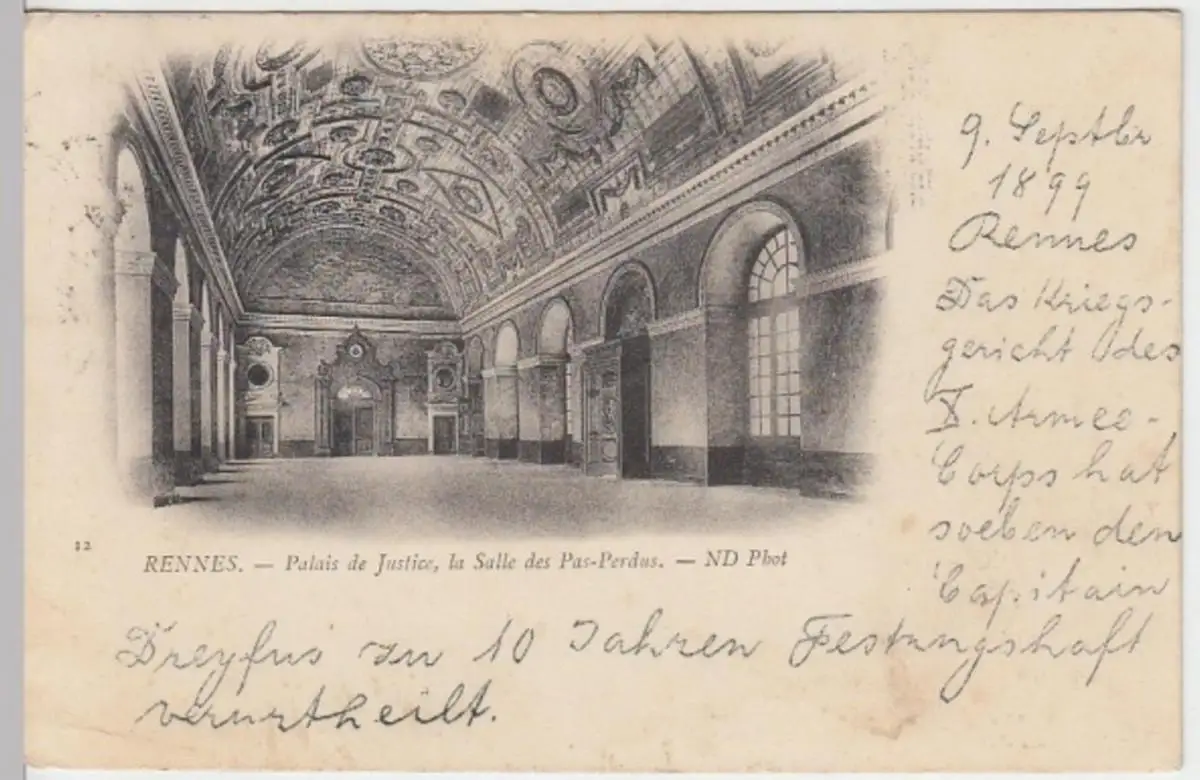 12
RENNES. — Palais de Justice, la Salle des Pas-Perdus. — ND Phot
9. Septbr
1899
Rennes
Das Kriegs-
gericht des
X. Armee-
Corps hat
soeben den
Capitain
Dreyfus zu 10 Jahren Festungshaft
verurtheilt.